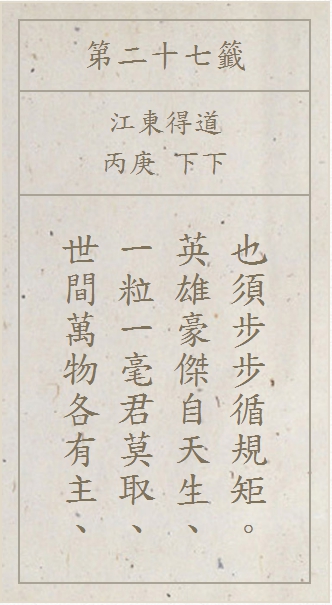 第二十七籤
江東得道
丙庚 下下
世間萬物各有主、
一粒一毫君莫取、
英雄豪傑自天生、
也須步步循規矩。